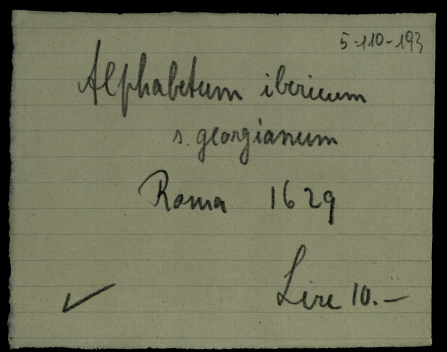 5-110-193
Alphabetum ibericum
s. georgianum
Roma 1629
Lire 10.—